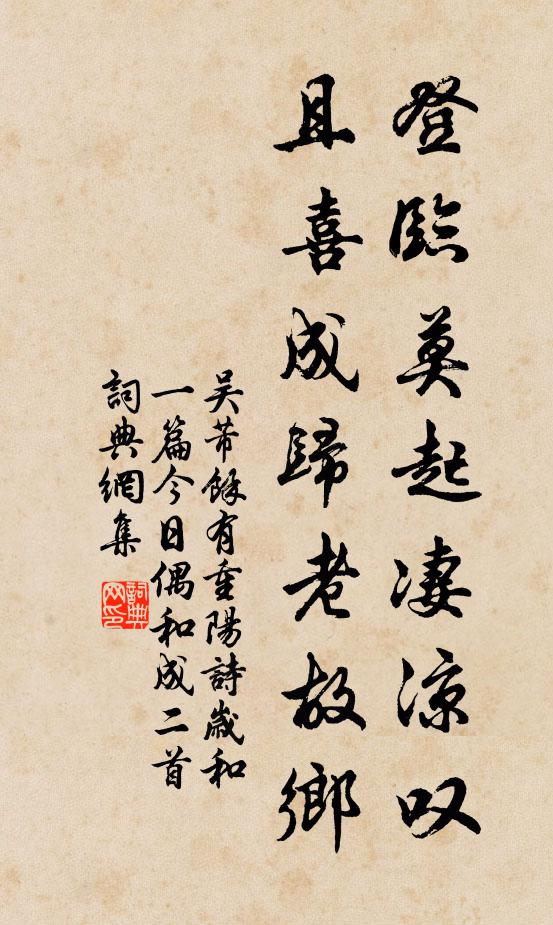 登臨莫起凄涼叹
且喜成歸老故鄉
吴芾餘有重陽詩歲和
一篇今日偶和成二首
詞典網集
詞典網印